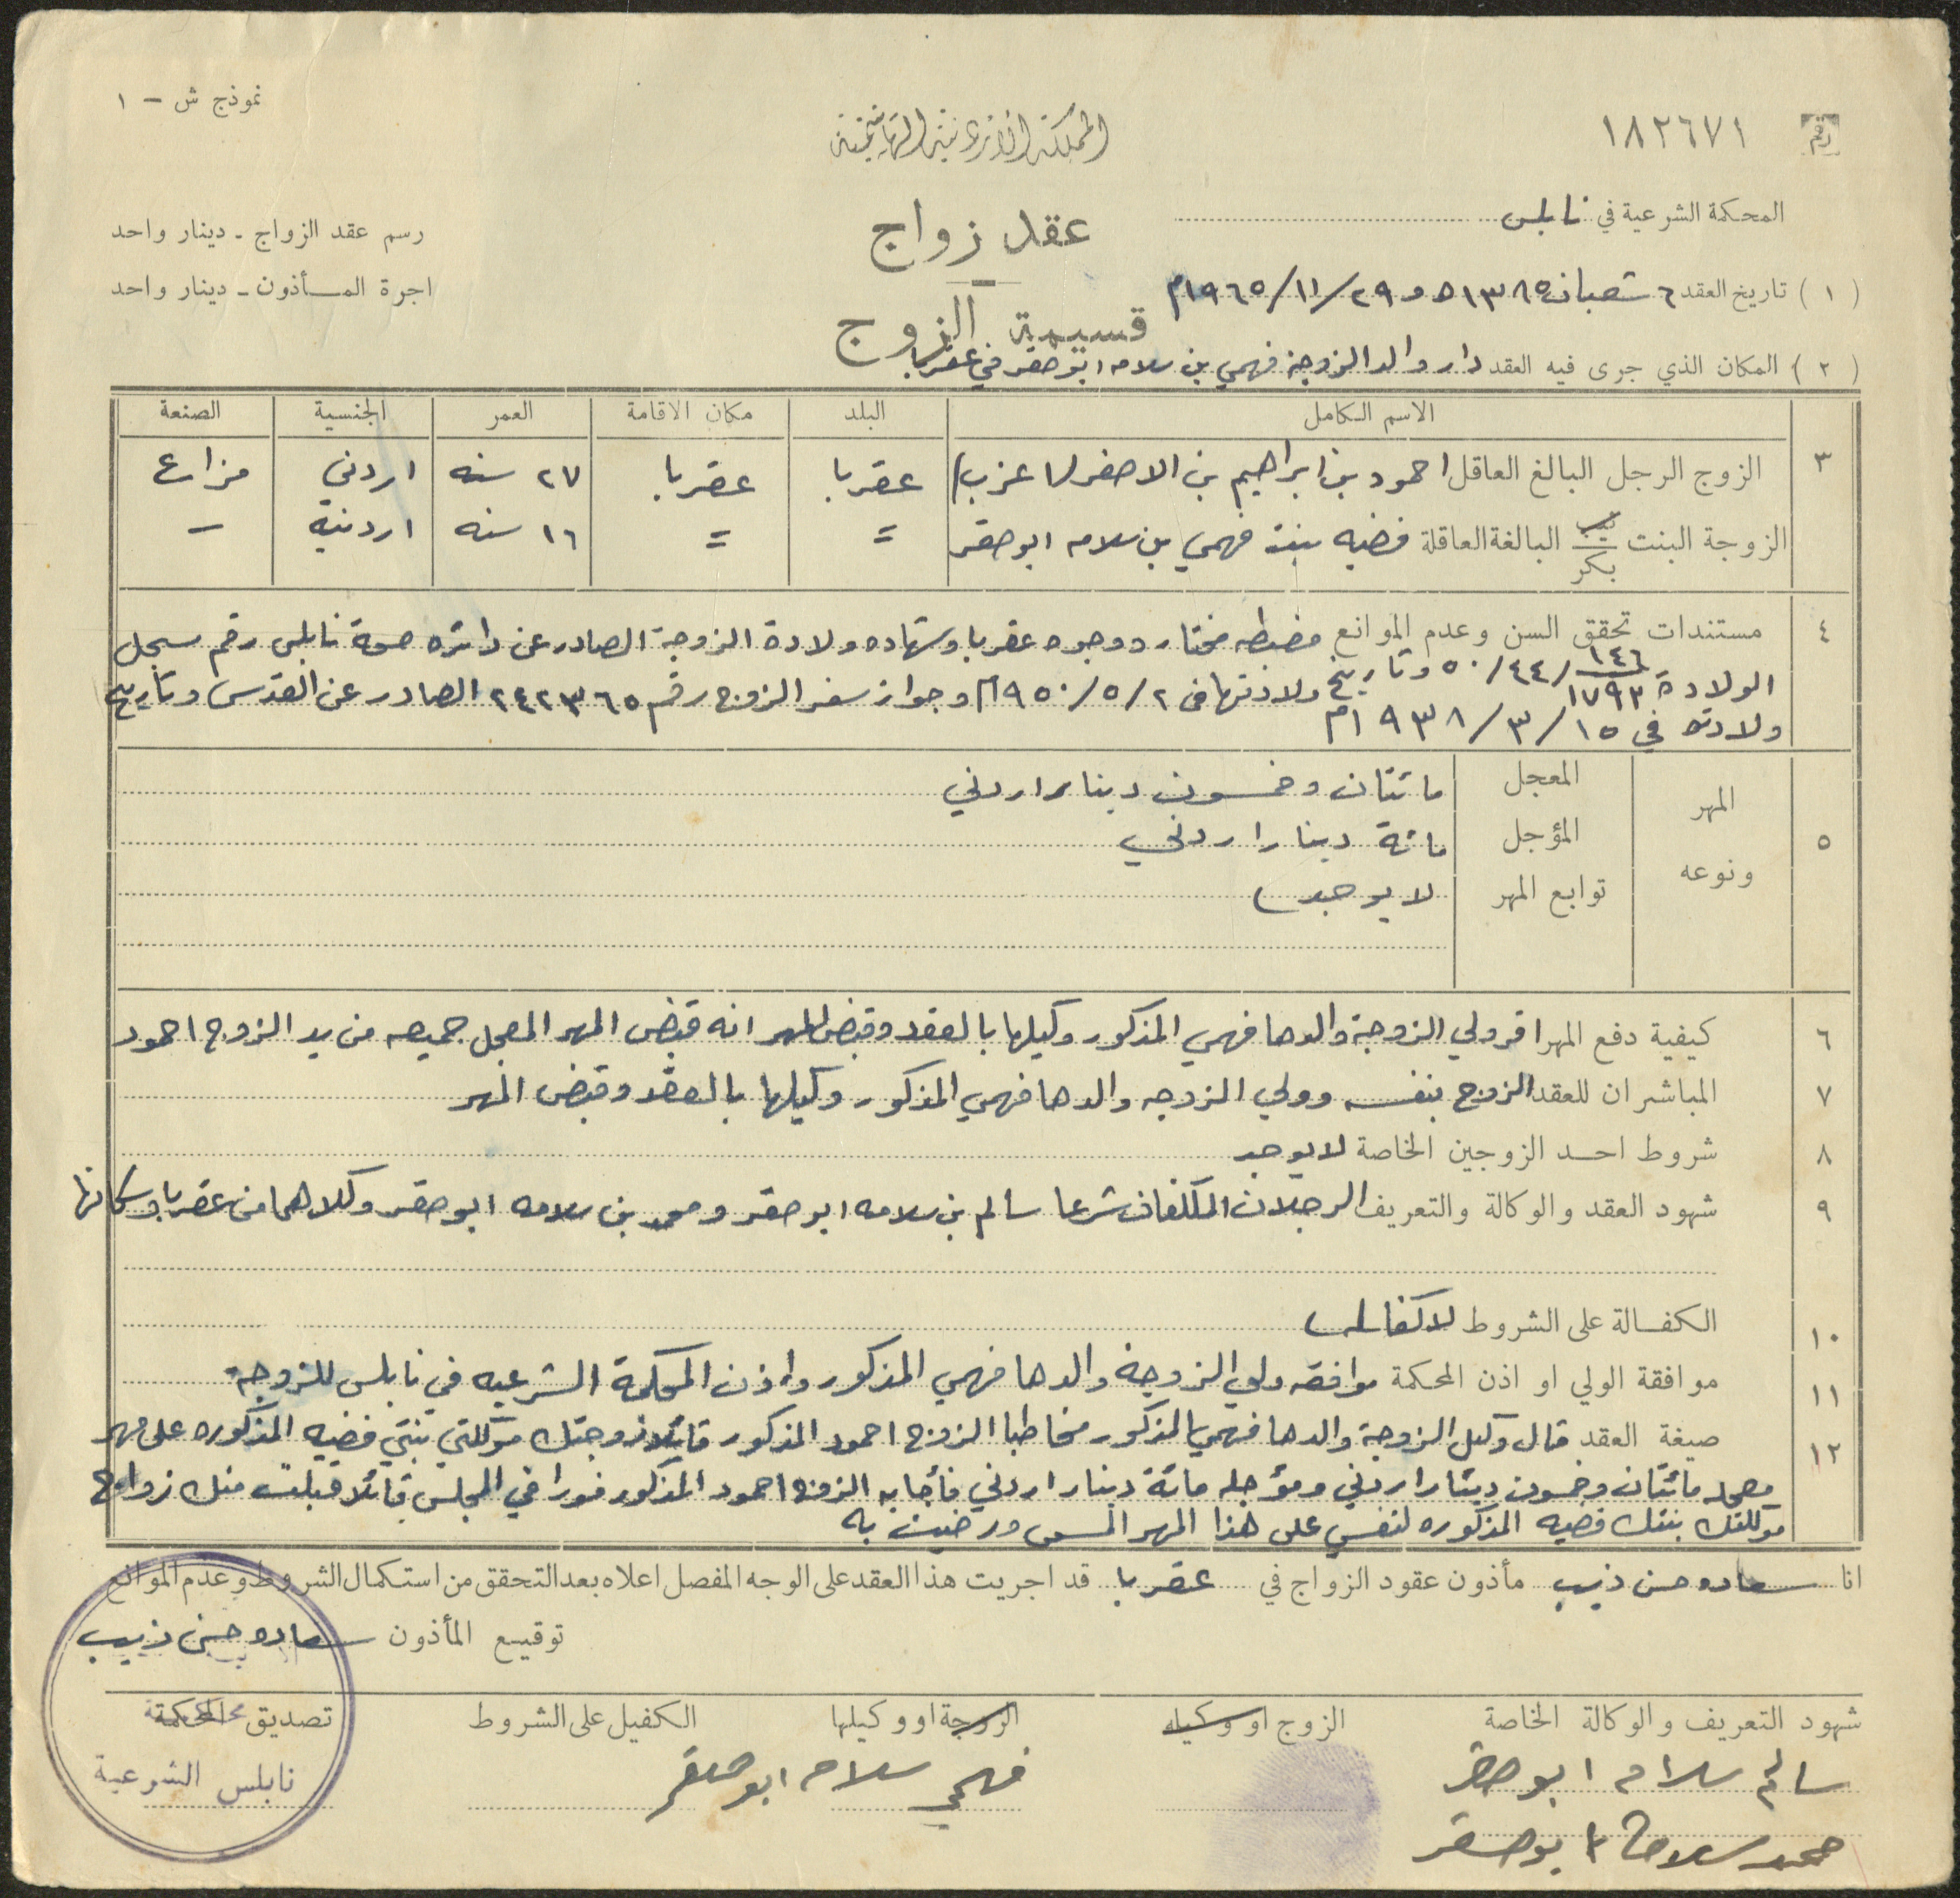 نموذج ش - ١
المملكة الاردنية الهاشمية
رقم ١٨٢٦٧١
المحكمة الشرعية في نابلس
عقد زواج
رسم عقد الزواج - دينار واحد
(١) تاريخ العقد ٦ شعبان ١٣٨٥ه و ٢٩/١١/١٩٦٥م
اجرة المأذون - دينار واحد
قسيمة الزوج
(٢) المكان الذي جرى فيه العقد دار والد الزوجة فهمي بن سلامه ابو صقر في عقربا
الاسم الكامل البلد مكان الاقامة العمر الجنسية الصنعة
٣ الزوج الرجل البالغ العاقل احمود بن ابراهيم بن الاصفر (عزب) عقربا عقربا ٢٧ سنه اردني مزارع
الزوجة البنت ثيب بكر البالغة العاقلة فضيه بنت فهمي بن سلامه ابو صقر = = ١٦ سنه اردنية -
٤ مستندات تحقق السن وعدم الموانع مضبطه مختار ووجوه عقربا وشهاده ولادة الزوجة الصادر عن دائره صحة نابلس رقم سجل
الولادة ١٤٦/١٧٩٣ /٤٤/٥٠ وتاريخ ولادتها في ٢/٥/١٩٥٠م وجواز سفر الزوج رقم ٢٤٢٣٦٥ الصادر عن القدس وتاريخ
ولادته في ١٥/٣/١٩٣٨م
٥ المهر ونوعه
المعجل مائتان وخمسون دينار اردني
المؤجل مائة دينار اردني
توابع المهر لا يوجد
٦ كيفية دفع المهر اقر ولي الزوجة والدها فهمي المذكور وكيلها بالعقد وقبض المهر انه قبض المهر المعجل جميعه من يد الزوج احمود
٧ المباشران للعقد الزوج بنفسه وولي الزوجه والدها فهمي المذكور وكيلها بالعقد وقبض المهر
٨ شروط احد الزوجين الخاصة لا يوجد
٩ شهود العقد والوكالة والتعريف الرجلان المكلفان شرعا سالم بن سلامه ابو صقر ومحمد بن سلامه ابو صقر وكلاهما من عقربا وسكانها
١٠ الكفالة على الشروط لا كفاله
١١ موافقة الولي او اذن المحكمة موافقه ولي الزوجة والدها فهمي المذكور واذن المحكمة الشرعيه في نابلس للزوجة
١٢ صيغة العقد قال وكيل الزوجة والدها فهمي المذكور مخاطبا الزوج احمود المذكور قائلا زوجتك موكلتي بنتي فضيه المذكوره على مهر
معجله مائتان وخمسون دينارا اردني ومؤجله مائة دينار اردني فأجابه الزوج احمود المذكور فورا في المجلس قائلا قبلت منك زواج
موكلتك بنتك فضيه المذكوره لنفسي على هذا المهر المسمى ورضيت به
انا سعاده حسن ذيب مأذون عقود الزواج في عقربا قد اجريت هذا العقد على الوجه المفصل اعلاه بعد التحقق من استكمال الشروط وعدم الموانع
توقيع المأذون سعاده حسن ذيب
شهود التعريف والوكالة الخاصة الزوج او وكيله الزوجة او وكيلها الكفيل على الشروط تصديق المحكمة
سالم سلامه ابو صقر
فهمي سلامه ابو صقر
محكمة
نابلس الشرعية
محمد سلامة ابو صقر